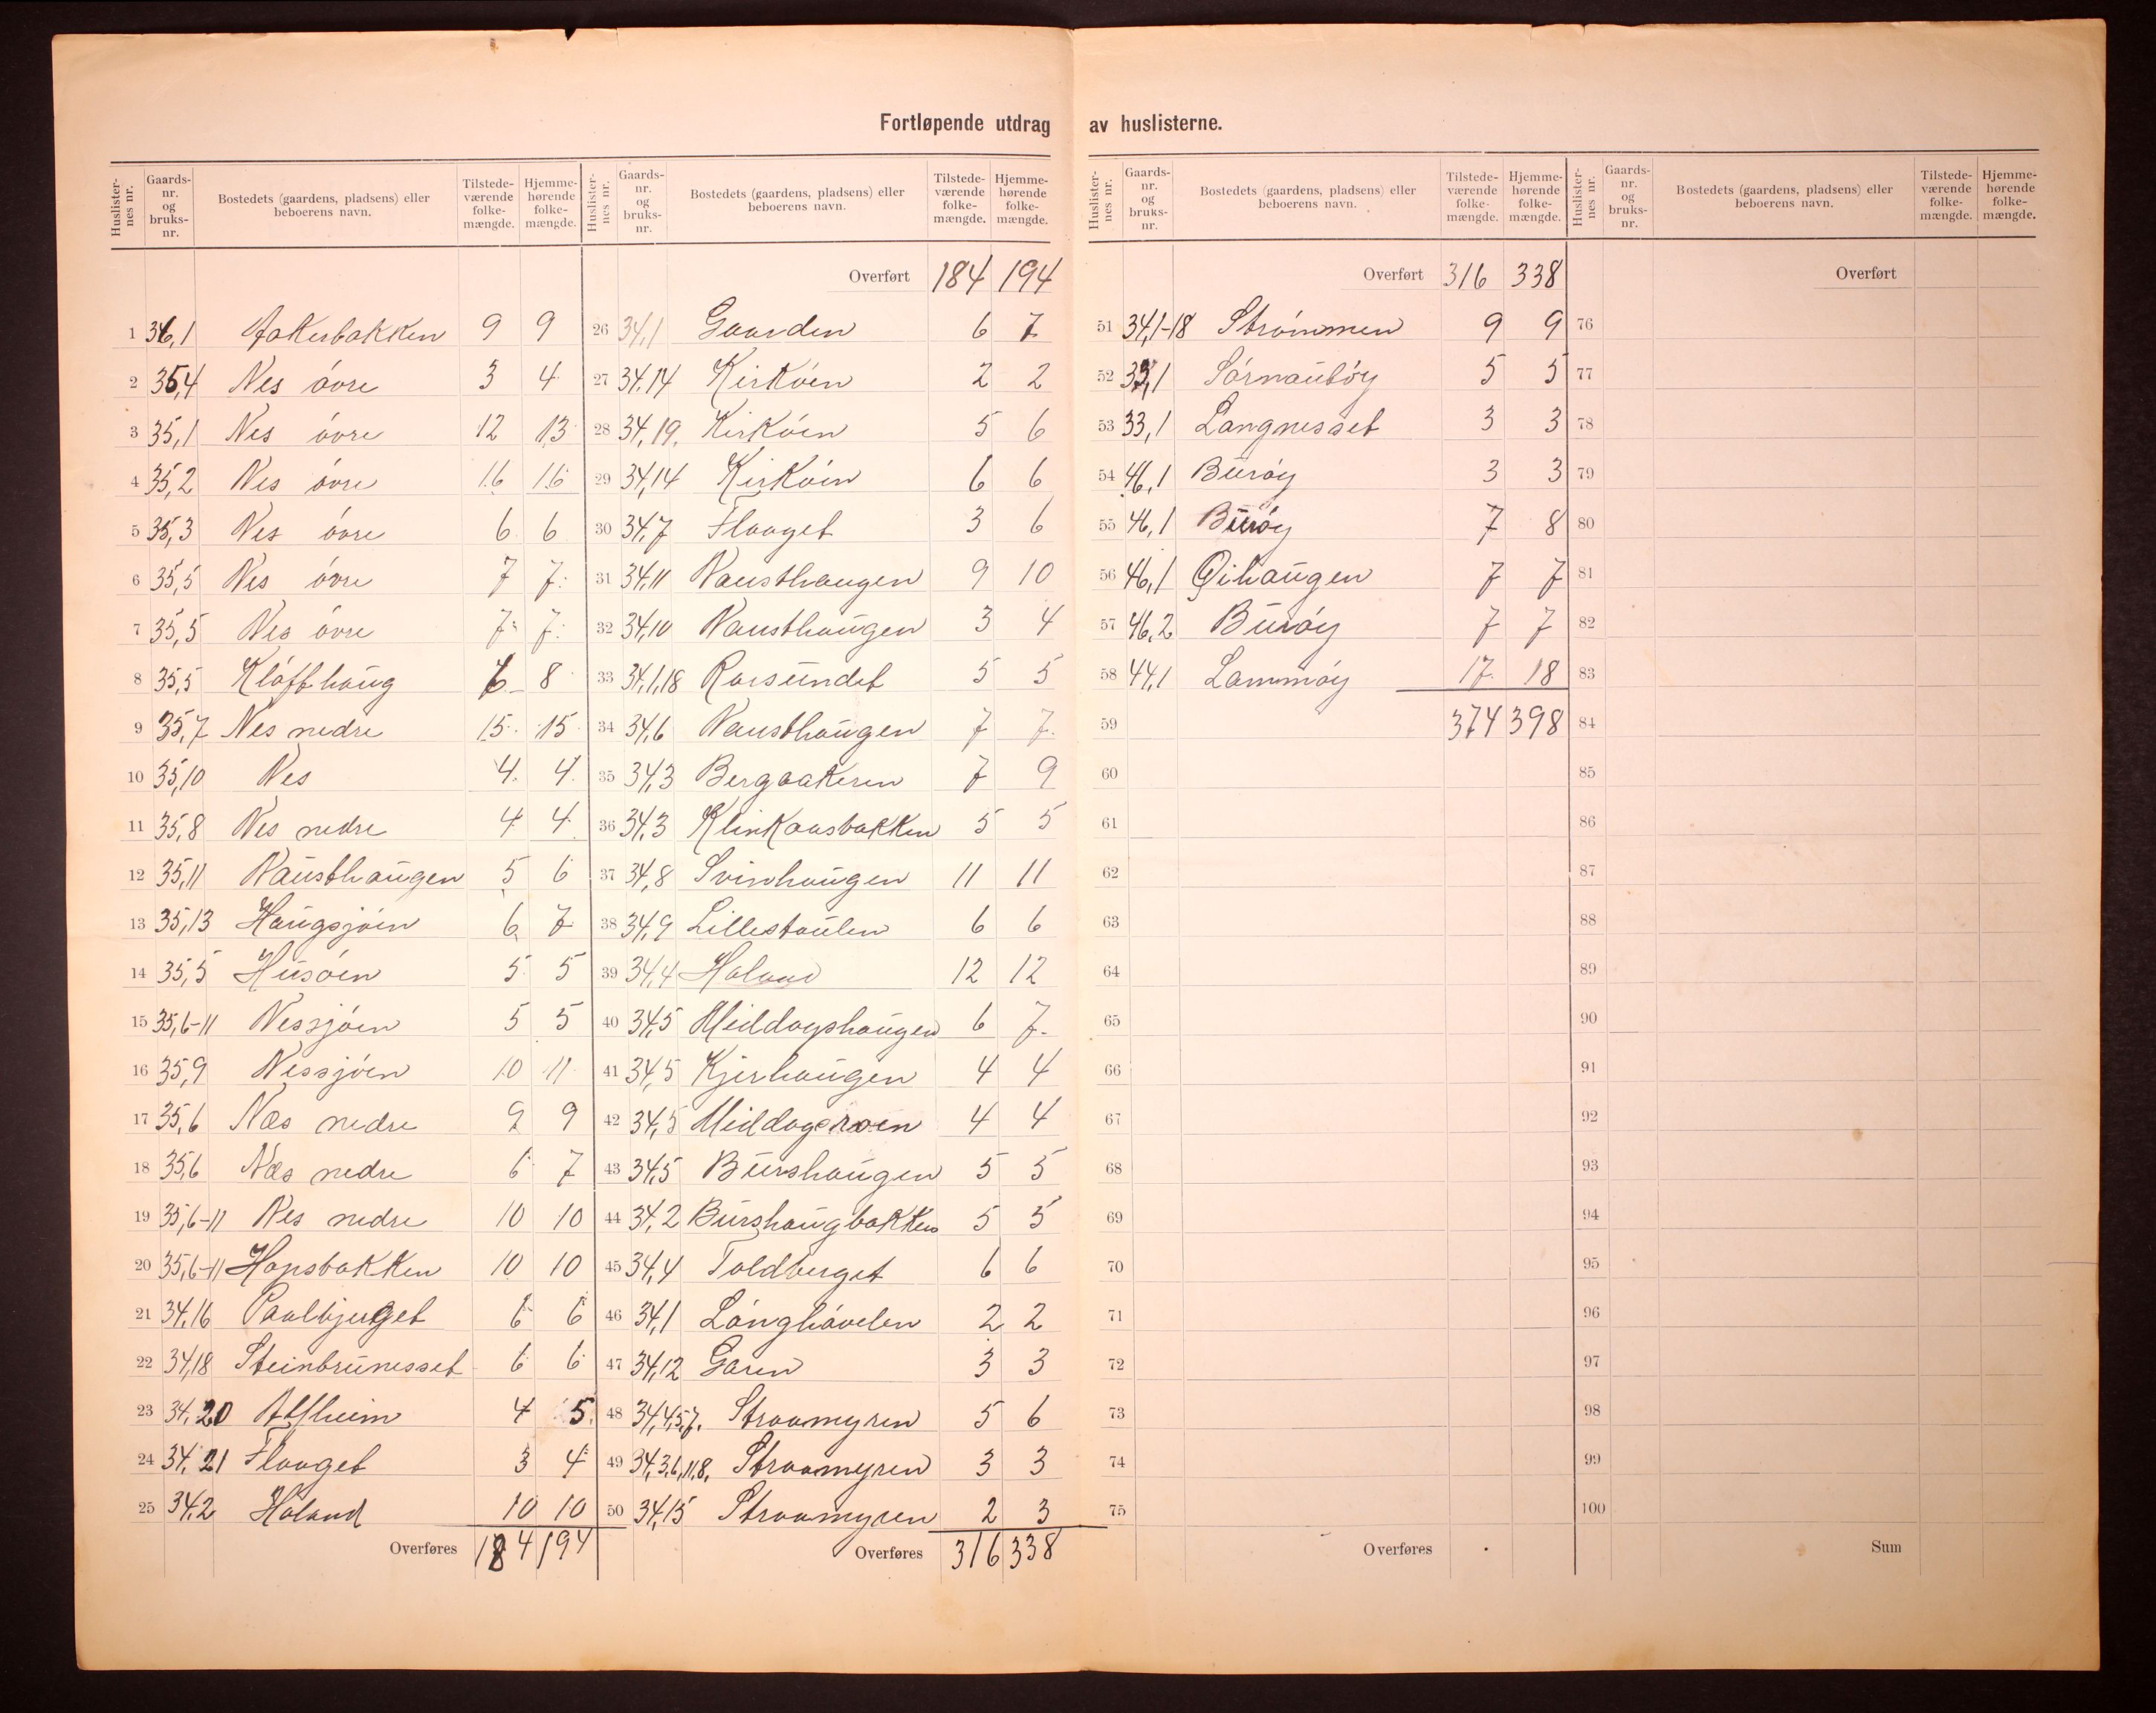 Fortløpende utdrag av huslisterne.
Huslisternes nr. Gaards-nr. og bruks-nr. Bostedets (gaardens, pladsens) eller beboerens navn. Tilstedeværende folkemængde. Hjemmehørende folkemængde.
1 36,1 Aakerbakken 9 9
2 35,4 Nes øvre 3 4
3 35,1 Nes øvre 12 13
4 35,2 Nes øvre 16 16
5 35,3 Nes øvre 6 6
6 35,5 Nes øvre 7 7
7 35,5 Nes øvre 7 7
8 35,5 Kløfthaug 6 8
9 35,7 Nes nedre 15 15
10 35,10 Nes 4 4
11 35,8 Nes nedre 4 4
12 35,11 Nausthaugen 5 6
13 35,13 Haugsjøen 6 7
14 35,5 Husøen 5 5
15 35,6-11 Nessjøen 5 5
16 35,9 Nessjøen 10 11
17 35,6 Næs nedre 9 9
18 35,6 Næs nedre 6 7
19 35,6-11 Nes nedre 10 10
20 35,6-11 Hopsbakken 10 10
21 34,16 Paulbjerget 6 6
22 34,18 Steinbrunesset 6 6
23 34,20 Alfheim 4 5
24 34,21 Flauget 3 4
25 34,2 Haland 10 10
Overføres 184 194
Huslisternes nr. Gaards-nr. og bruks-nr. Bostedets (gaardens, pladsens) eller beboerens navn. Tilstedeværende folkemængde. Hjemmehørende folkemængde.
Overført 184 194
26 34,1 Gaarden 6 7
27 34,14 Kirkøen 2 2
28 34,19 Kirkøen 5 6
29 34,14 Kirkøen 6 6
30 34,7 Flauget 3 6
31 34,11 Nausthaugen 9 10
32 34,10 Nausthaugen 3 4
33 34,1,18 Rorsundet 5 5
34 34,6 Nausthaugen 7 7
35 34,3 Bergaakeren 7 9
36 34,3 Klinkaasbakken 5 5
37 34,8 Svinhaugen 11 11
38 34,9 Lillestaulen 6 6
39 34,4 Haland 12 12
40 34,5 Middagshaugen 6 7
41 34,5 Kjerhaugen 4 4
42 34,5 Middagsroen 4 4
43 34,5 Burshaugen 5 5
44 34,2 Burshaugbakken 5 5
45 34,4 Toldberget 6 6
46 34,1 Langhávelen 2 2
47 34,12 Garen 3 3
48 34,4,5,7. Straamyren 5 6
49 34,3,6,11,8. Straamyren 3 3
50 34,15 Straamyren 2 3
Overføres 316 338
Huslisternes nr. Gaards-nr. og bruks-nr. Bostedets (gaardens, pladsens) eller beboerens navn. Tilstedeværende folkemængde. Hjemmehørende folkemængde.
Overført 316 338
51 34,1-18 Strømmen 9 9
52 33,1 Sørnaubøy 5 5
53 33,1 Langnesset 3 3
54 46,1 Burøy 3 3
55 46,1 Burøy 7 8
56 46,1 Qvihaugen 7 7
57 46,2 Burøy 7 7
58 44,1 Lammøy 17 18
59 374 398
60
61
62
63
64
65
66
67
68
69
70
71
72
73
74
75
Overføres
Huslisternes nr. Gaards-nr. og bruks-nr. Bostedets (gaardens, pladsens) eller beboerens navn. Tilstedeværende folkemængde. Hjemmehørende folkemængde.
Overført
76
77
78
79
80
81
82
83
84
85
86
87
88
89
90
91
92
93
94
95
96
97
98
99
100
Sum